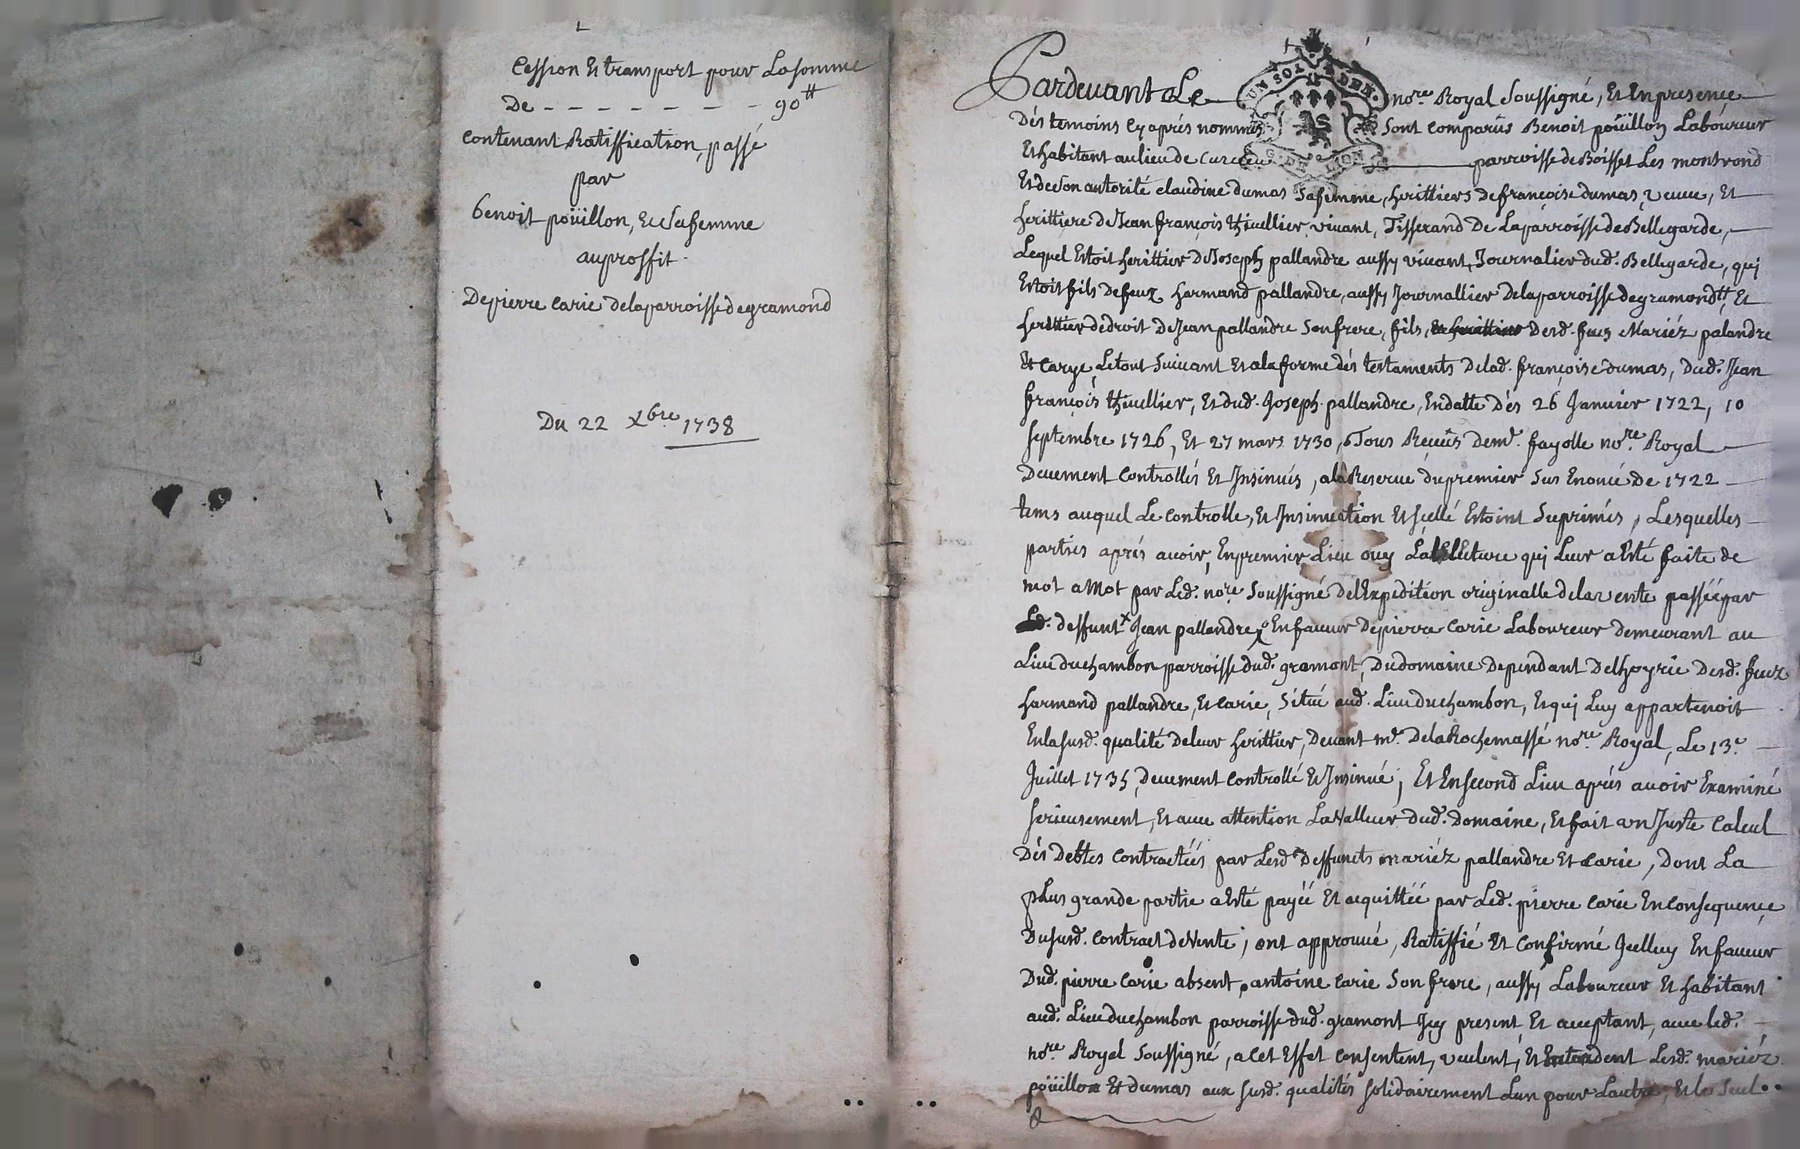 Cession Et transport pour La somme
De - - - - - - - 90 tt
contenant Ratiffication, passé
par
benoit poüillon, Et sa femme
au proffit
De pierre Carie de la parroisse de gramond
Du 22 Xbre 1738
Pardevant Le nore Royal Soussigné, Et En presence
Dés temoins Cy aprés nommés Sont comparûs Benoit poüillon Laboureur
Et habitant au lieu de Curcieu parroisse de Boisset Les montrond
Et de Son autorité claudine dumas Sa femme, herittiers de françoise dumas, veuve, Et
herittiere de Jean françois thivellier vivant, Tisserand De La parroisse de Bellegarde,
Lequel Estoit herittier de Joseph pallandre aussy vivant, Journalier dud. Bellegarde, qui
Estoit fils de feux harmand pallandre, aussy Journallier de la parroisse de gramond tt, Et
herittier de droit de Jean pallandre Son frere, fils, Desd. feux Mariéz palandre
Et Carye, Le tout Suivant Et a la forme dés testaments De lad. françoise dumas, Dud. Jean
françois thivellier, Et dud. Joseph pallandre, En datte Dés 26 Janvier 1722, 10
Septembre 1726, Et 27 mars 1730, Tous Reçeûs de me. fayolle nore. Royal
Deuement Controllés Et Insinués, a la Reserve du premier Sus Enoncé de 1722
tems auquel Le Controlle, Et Insinuation Et Scellé Estoint Suprimés, Lesquelles
parties aprés avoir, En premier Lieu ouy La Lecture qui Leur a Esté faite de
mot a Mot par Led. nore Soussigné de l'Expedition originalle de la vente passéé par
Led. deffunt Jean pallandre, En faveur De pierre Carie Laboureur demeurant au
Lieu du chambon parroisse dud. gramont, Du domaine Dependant De l'hoyrie Desd. feuz
harmand pallandre, Et Carie, Situé aud. Lieu du chambon, Et qui Luy appartenoit
En la susd. qualité de leur herittier, Devant me. De la Rochemassé nore. Royal, Le 13e.
Juillet 1735, Deuement Controllé Et Insinué, Et En Second Lieu aprés avoir Examiné
Serieusement, Et avec attention La Valleur dud. domaine, Et fait un Juste Calcul
Dés Debtes Contractéés par Lesd. Deffunts mariéz pallandre Et Carie, Dont La
pLus grande partie a Esté payéé Et acquittéé par Led. pierre Carie En Consequence
Du susd. Contract de Vente; ont approuvé, Ratiffié Et Confirmé Icelluy En faveur
Dud. pierre Carie absent, antoine Carie Son frere, aussy Laboureur Et habitant
aud. Lieu du chambon parroisse dud. gramont Icy present Et acceptant, avec led.
nore Royal Soussigné, a Cet Effet Consentent, veulent, Et Entendent Lesd. mariéz
poüillon Et dumas aux susd. qualités Solidairement L'un pour L'autre, Et le Seul